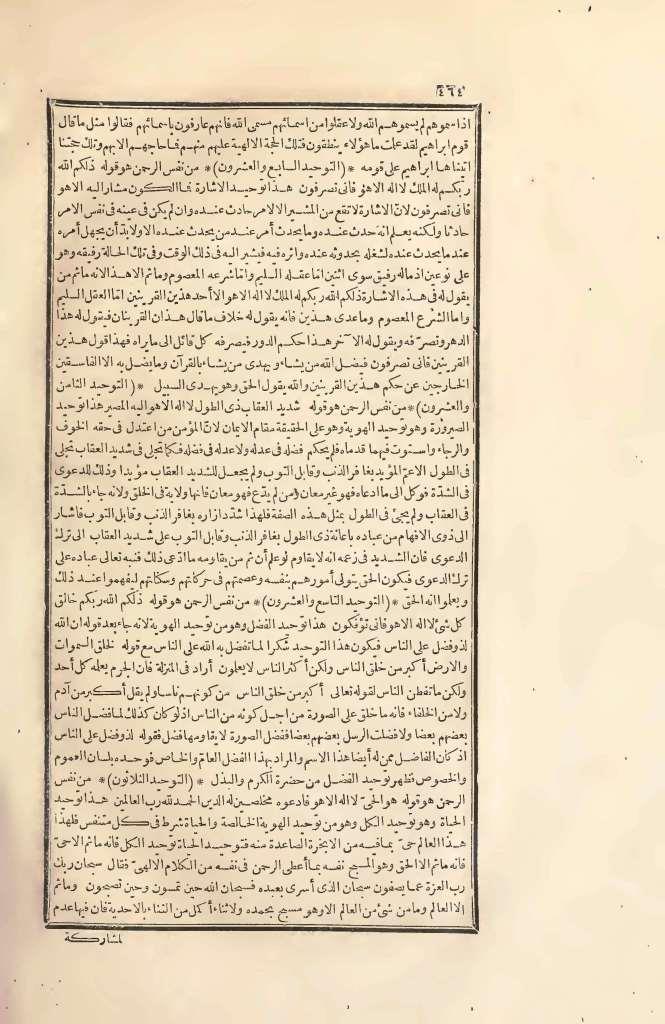 ٤٦٤
اذا سموهم لم يسموهم الله ولا عقلوا من اسمائهم مسمى الله فانهم عارفون باسمائهم فقالوا مثل ما قال
قوم ابراهيم لقد علمت ما هؤلاء ينطقون فتلك الحجة الالهية عليهم منهم فما حاجهم الا بهم وتلك حجتنا
آتيناها ابراهيم على قومه * (التوحيد السابع والعشرون) * من نفس الرحمن هو قوله ذلكم الله
ربكم له الملك لا اله الا هو فانى تصرفون هذا توحيد الاشارة فما فى الكون مشار اليه الا هو
فانى تصرفون لان الاشارة لا تقع من المشير الا لامر حادث عنده وان لم يكن فى عينه فى نفس الامر
حادثا ولكنه يعلم انه حدث عنده وما يحدث أمر عند من يحدث عنده الا ولابد أن يجهل أمره
عند ما يحدث عنده لشغله بحدوثه عنده واثره فيه فيشير اليه فى ذلك الوقت وفى تلك الحالة رفيقه وهو
على نوعين اذ ماله رفيق سوى اثنين اما عقله السليم واما شرعه المعصوم وما ثم الا هذا لانه ما ثم من
يقول له فى هذه الاشارة ذلكم الله ربكم له الملك لا اله الا هو الا أحد هذين القرينين اما العقل السليم
واما الشرع المعصوم وما عدى هذين فانه يقول له خلاف ما قال هذان القرينان فيقول له هذا
الدهر وتصرفه ويقول له الآخر هذا حكم الدور فيصرفه كل قائل الى ما يراه فهذا قول هذين
القرينين فانى تصرفون فيضل الله من يشاء ويهدى من يشاء بالقرآن وما يضل به الا الفاسقين
الخارجين عن حكم هذين القرينين والله يقول الحق وهو يهدى السبيل * (التوحيد الثامن
والعشرون) * من نفس الرحمن هو قوله شديد العقاب ذى الطول لا اله الا هو اليه المصير هذا توحيد
الصيرورة وهو توحيد الهوية وهو على الحقيقة مقام الايمان لان المؤمن من اعتدل فى حقه الخوف
والرجاء واستوت فيهما قدماه فلم يحكم فضله فى عدله ولا عدله فى فضله فكما تجلى فى شديد العقاب تجلى
فى الطول الاعم المؤيد بغافر الذنب وقابل التوب ولم يجعل للشديد العقاب مؤيدا وذلك للدعوى
فى الشدة فوكل الى ما ادعاه فهو غير معان ومن لم يدّع فهو معان فانها ولاية فى الخلق ولانه جاء بالشدة
فى العقاب ولم يجئ فى الطول بمثل هذه الصفة فلهذا شدد ازاره بغافر الذنب وقابل التوب فاشار
الى ذوى الافهام من عباده باعانة ذى الطول بغافر الذنب وقابل التوب على شديد العقاب الى ترك
الدعوى فان الشديد فى زعمه انه لا يقاوم لو علم أن ثم من يقاومه ما ادعى ذلك فنبه تعالى عباده على
ترك الدعوى فيكون الحق يتولى أمورهم بنفسه وعصمتهم فى حركاتهم وسكناتهم ليفهموا عند ذلك
ويعلموا انه الحق * (التوحيد التاسع والعشرون) * من نفس الرحمن هو قوله ذلكم الله ربكم خالق
كل شئ لا اله الا هو فانى تؤفكون هذا توحيد الفضل وهو من توحيد الهوية لانه جاء بعد قوله ان الله
لذو فضل على الناس فيكون هذا التوحيد شكرا لما تفضل به الله على الناس مع قوله لخلق السموات
والارض أكبر من خلق الناس ولكن أكثر الناس لا يعلمون أراد فى المنزلة فان الجرم يعلمه كل أحد
ولكن ما تفطن الناس لقوله تعالى أكبر من خلق الناس من كونهم ناسا ولم يقل أكبر من آدم
ولا من الخلفاء فانه ما خلق على الصورة من اجل كونه من الناس اذ لو كان كذلك لما فضل الناس
بعضهم بعضا ولا فضلت الرسل بعضهم بعضا ففضل الصورة لا يقاومها فضل فقوله لذو فضل على الناس
اذ كان الفاضل ممن له أيضا هذا الاسم والمراد بهذا الفضل العام والخاص فوحده بلسان العموم
والخصوص فظهر توحيد الفضل من حضرة الكرم والبذل * (التوحيد الثلاثون) * من نفس
الرحمن هو قوله هو الحى لا اله الا هو فادعوه مخلصين له الدين الحمد لله رب العالمين هذا توحيد
الحياة وهو توحيد الكل وهو من توحيد الهوية الخالصة والحياة شرط فى كل متنفس فلهذا
هذا العالم حى بما فيه من الابخرة الصاعدة منه فتوحيد الحياة توحيد الكل فانه ما ثم الا حى
فانه ما ثم الا الحق وهو المسبح نفسه بما أعطى الرحمن فى نفسه من الكلام الالهى فقال سبحان ربك
رب العزة عما يصفون سبحان الذى أسرى بعبده فسبحان الله حين تمسون وحين تصبحون وما ثم
الا العالم وما من شئ من العالم الا وهو مسبح بحمده ولا ثناء أكمل من الثناء بالاحدية فان فيها عدم
المشاركة